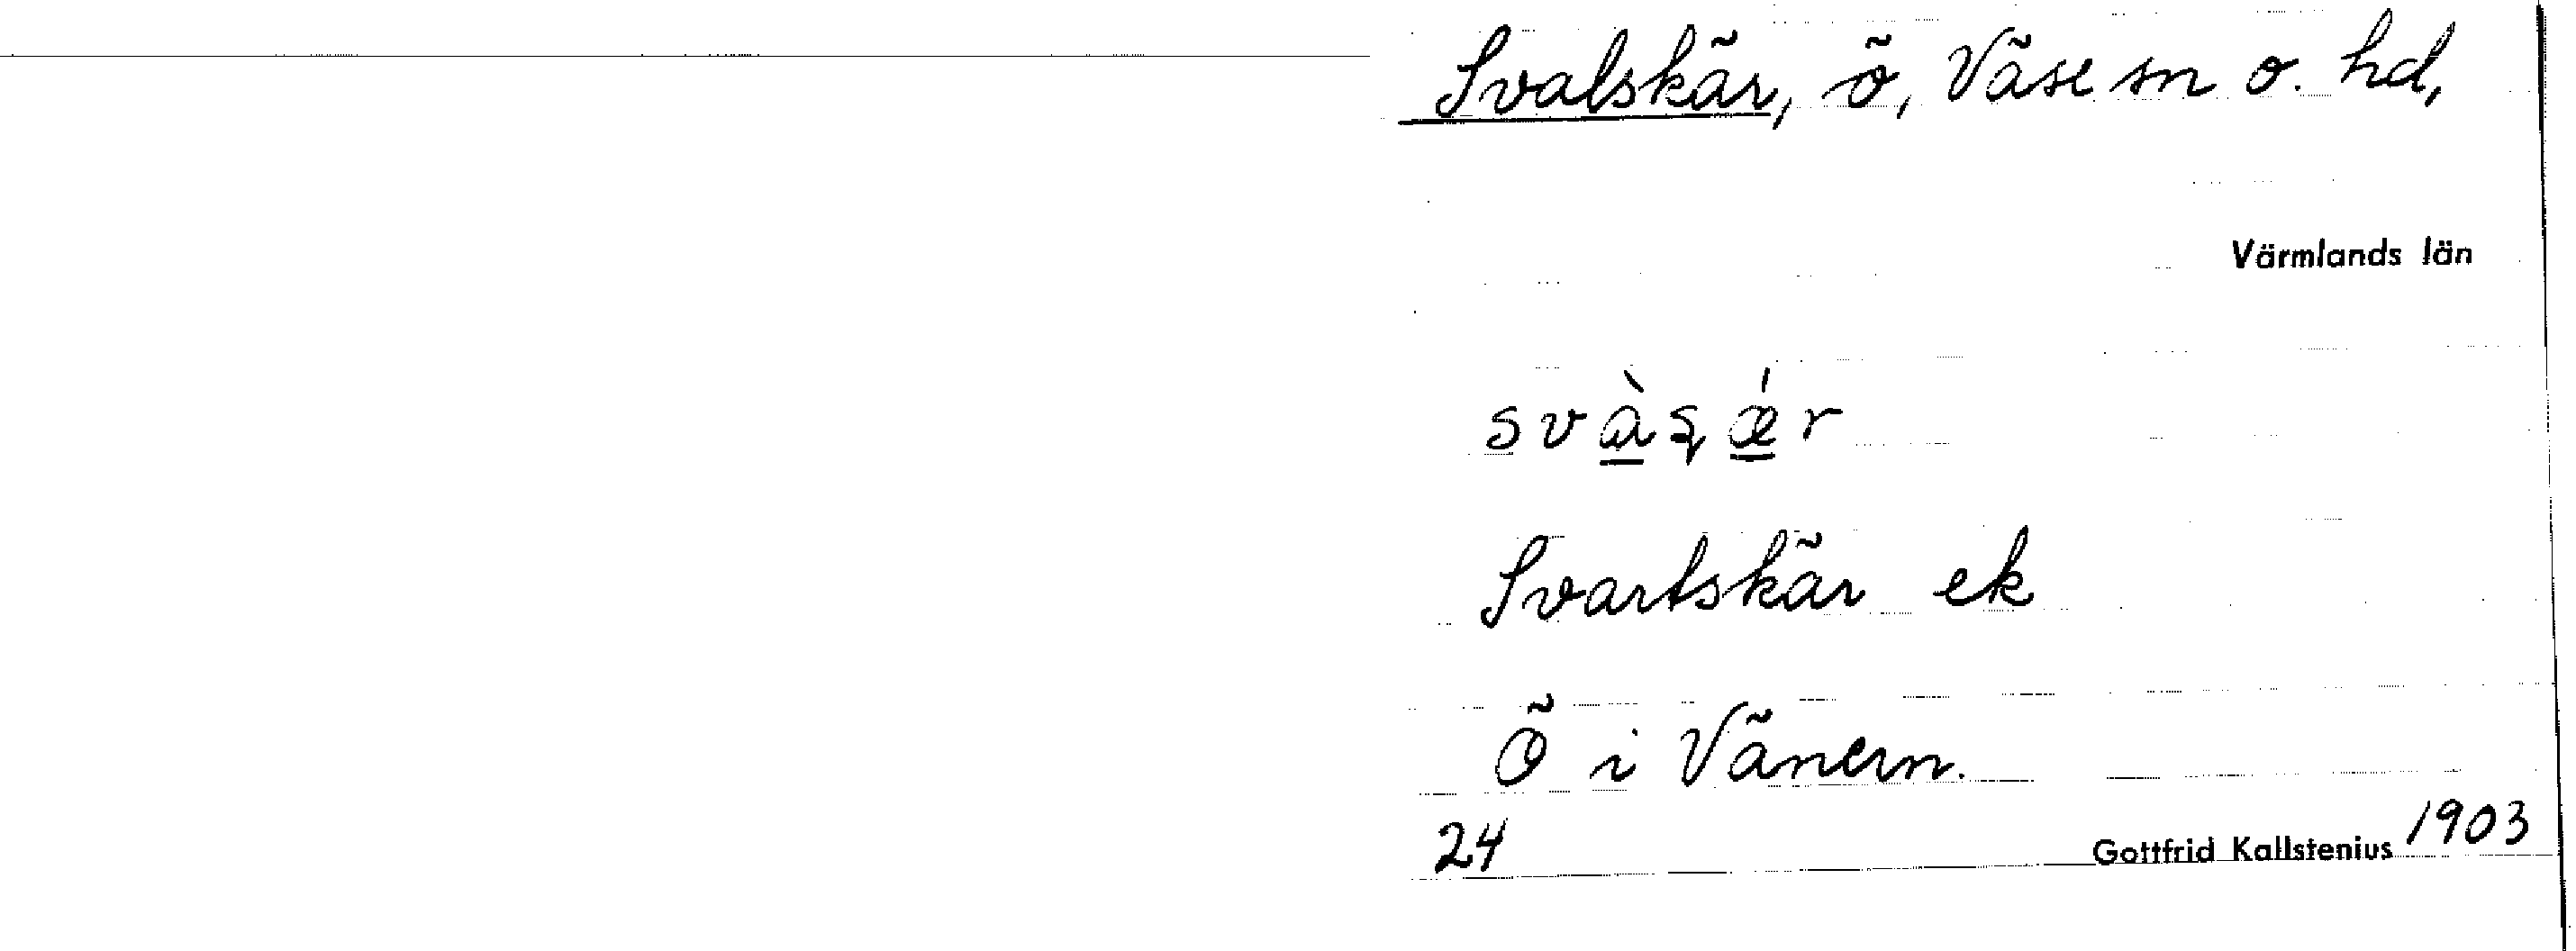 Svalskär, ö, Väse sn o. hd,
Värmlands län
svàʂǽr
Svartskär ek
Ö i Vänern.
24 Gottfrid Kallstenius 1903